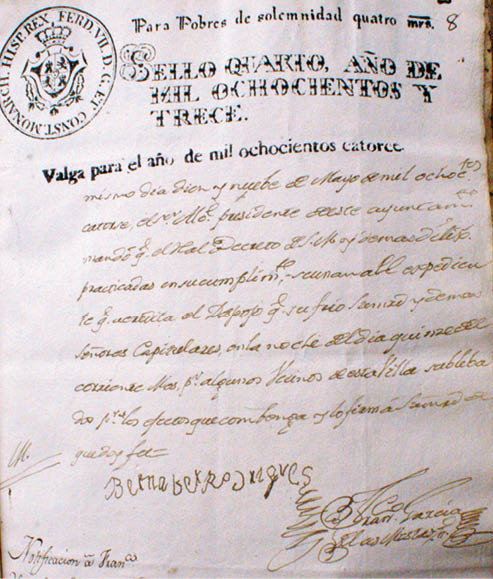 HISP. REX, FERD. VII. D. G. ET CONST. MONARCH.
Para Pobres de solemnidad quatro mrs. 8
SELLO QUARTO, AÑO DE
MIL OCHOCIENTOS Y
TRECE.
Valga para el año de mil ochocientos catorce.
mismo dia diez y nuebe de Mayo de mil ochoc.tos
catorse, el sr. presidente de este ayuntam.to
mandó q.e el Real Decreto de S. M. y demas
practicadas en su cumplim.to, se unan al expedien
te q.e acredita el despojo q.e sufrio su mrd. y demas
Señores Capitulares, en la noche del dia quinze del
corriente Mes, p.r algunos Vecinos de esta Villa subleba
dos p.a los efectos que combenga y lo firmó su mrd. de
que doy fee=
Bernabe Rodrigues
Fran.co Garcia
Notificacion á Fran.co